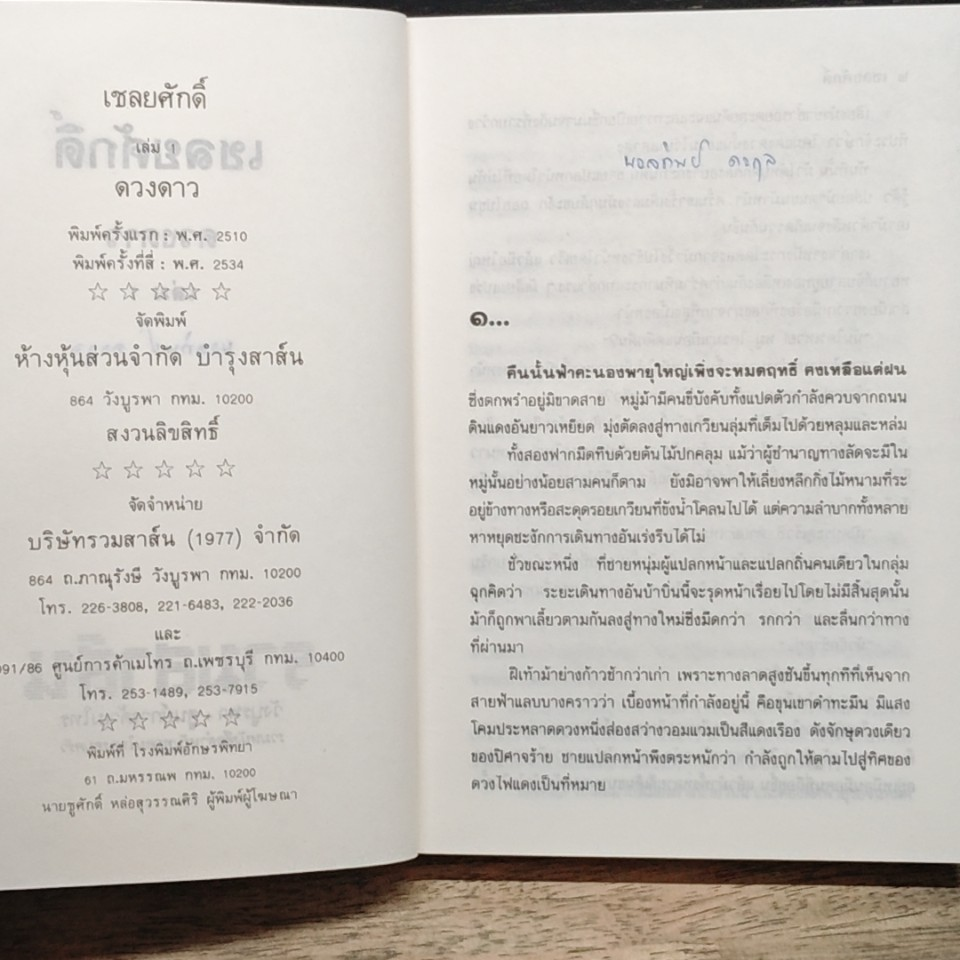 เชลยศักดิ์
เล่ม 1
ดวงดาว
พิมพ์ครั้งแรก : พ.ศ. 2510
พิมพ์ครั้งที่สี่ : พ.ศ. 2534
☆ ☆ ☆ ☆ ☆
จัดพิมพ์
ห้างหุ้นส่วนจำกัด บำรุงสาส์น
864 วังบูรพา กทม. 10200
สงวนลิขสิทธิ์
☆ ☆ ☆ ☆ ☆
จัดจำหน่าย
บริษัทรวมสาส์น (1977) จำกัด
864 ถ.ภาณุรังษี วังบูรพา กทม. 10200
โทร. 226-3808, 221-6483, 222-2036
และ
091/86 ศูนย์การค้าเมโทร ถ.เพชรบุรี กทม. 10400
โทร. 253-1489, 253-7915
☆ ☆ ☆ ☆ ☆
พิมพ์ที่ โรงพิมพ์อักษรพิทยา
61 ถ.มหรรณพ กทม. 10200
นายชูศักดิ์ หล่อสุวรรณศิริ ผู้พิมพ์ผู้โฆษณา
๑...
คืนนั้นฟ้าคะนองพายุใหญ่เพิ่งจะหมดฤทธิ์ คงเหลือแต่ฝน
ซึ่งตกพรำอยู่มิขาดสาย หมู่ม้ามีคนขี่บังคับทั้งแปดตัวกำลังควบจากถนน
ดินแดงอันยาวเหยียด มุ่งตัดลงสู่ทางเกวียนลุ่มที่เต็มไปด้วยหลุมและหล่ม
ทั้งสองฟากมืดทึบด้วยต้นไม้ปกคลุม แม้ว่าผู้ชำนาญทางลัดจะมีใน
หมู่นั้นอย่างน้อยสามคนก็ตาม ยังมิอาจพาให้เลี่ยงหลีกกิ่งไม้หนามที่ระ
อยู่ข้างทางหรือสะดุดรอยเกวียนที่ขังน้ำโคลนไปได้ แต่ความลำบากทั้งหลาย
หาหยุดชะงักการเดินทางอันเร่งรีบได้ไม่
ชั่วขณะหนึ่ง ที่ชายหนุ่มผู้แปลกหน้าและแปลกถิ่นคนเดียวในกลุ่ม
ฉุกคิดว่า ระยะเดินทางอันบ้าบิ่นนี้จะรุดหน้าเรื่อยไปโดยไม่มีสิ้นสุดนั้น
ม้าก็ถูกพาเลี้ยวตามกันลงสู่ทางใหม่ซึ่งมืดกว่า รกกว่า และลื่นกว่าทาง
ที่ผ่านมา
ฝีเท้าม้าย่างก้าวช้ากว่าเก่า เพราะทางลาดสูงชันขึ้นทุกทีที่เห็นจาก
สายฟ้าแลบบางคราวว่า เบื้องหน้าที่กำลังอยู่นี้ คือขุนเขาดำทะมึน มีแสง
โคมประหลาดดวงหนึ่งส่องสว่างวอมแวมเป็นสีแดงเรือง ดังจักษุดวงเดียว
ของปิศาจร้าย ชายแปลกหน้าพึงตระหนักว่า กำลังถูกให้ตามไปสู่ทิศของ
ดวงไฟแดงเป็นที่หมาย